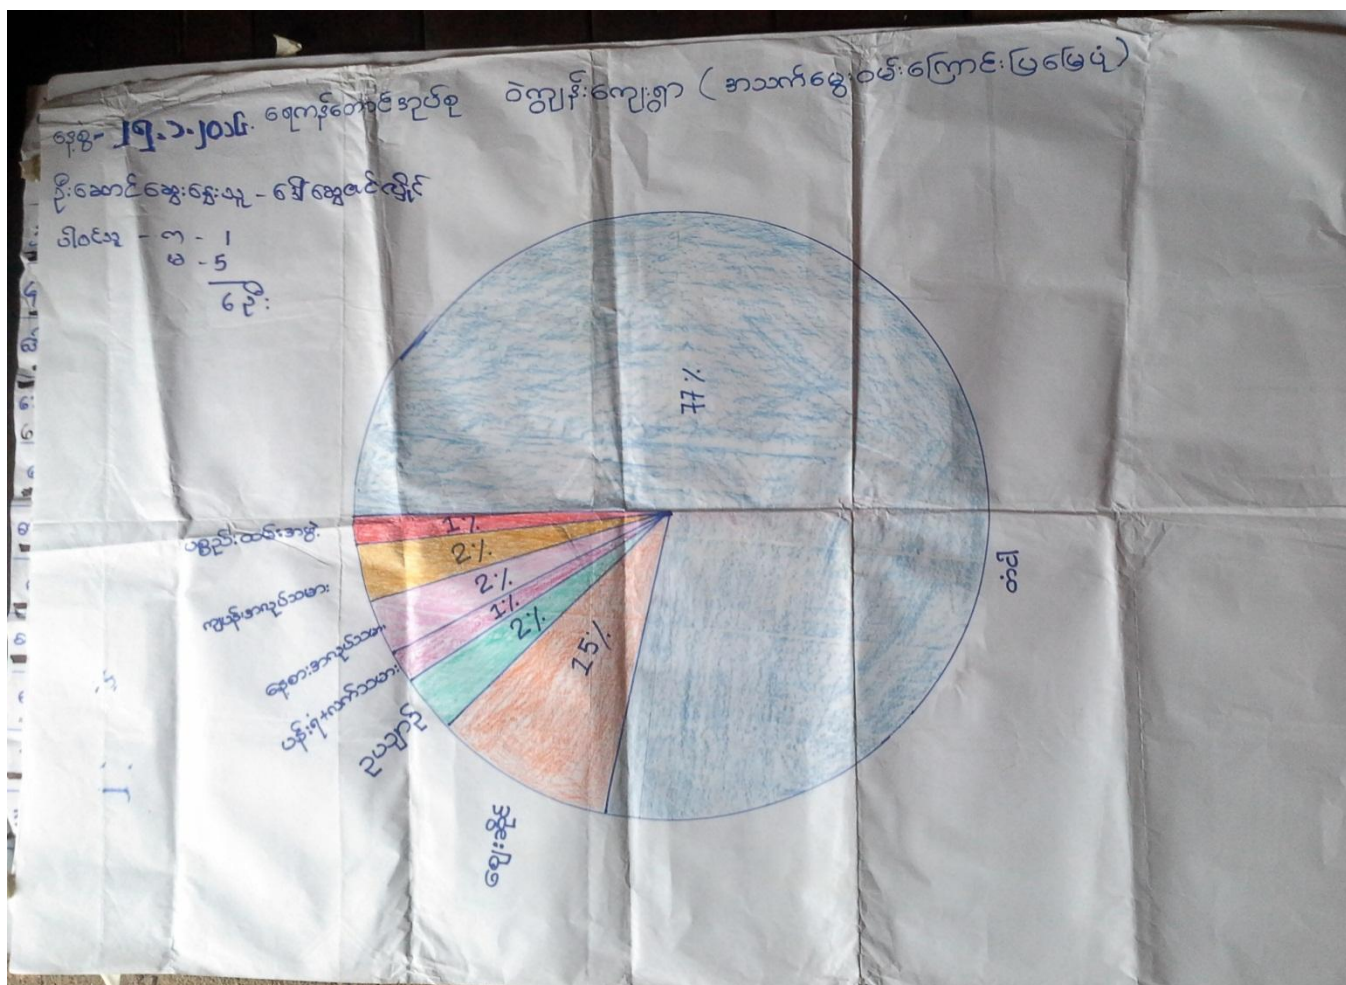 နေ့စွဲ - ၂၅.၁.၂၀၁၆ ရေကန်တောင်အုပ်စု ဝဲကျွန်းကျေးရွာ (အသက်မွေးဝမ်းကြောင်းပြမြေပုံ)
ဦးဆောင်ဆွေးနွေးသူ - ဒေါ်ဆွေဇင်လှိုင်
ပါဝင်သူ - ကျ - 1
မ - 5
6 ဦး
77%
1%
2%
2%
1%
2%
15%
ပစ္စည်းထမ်းအဖွဲ့
ကျပန်းအလုပ်သမား
နေ့စားအလုပ်သမား
ပန်းရံ+လက်သမား
ဥယျာဉ်
မွေးမြူရေး
တံငါ